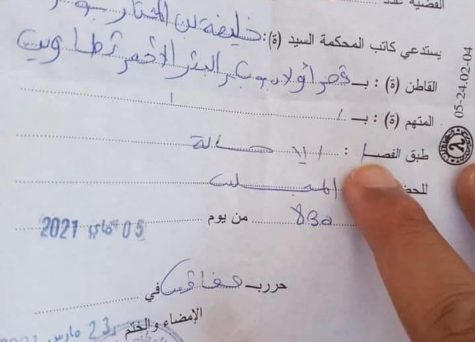 القضية عدد
يستدعي كاتب المحكمة السيد (ة): خليفة بن المختار بو
القاطن (ة) : بـ قصر أولاد بوبكر البئر الأحمر تطاوين
المتهم (ة) : بـ /
طبق الفصل : الإحالة
للحضور
830 من يوم 05 ماي 2021
حرر بـ صفاقس في
الإمضاء والختم 23 مارس 2021
05-24.02-04